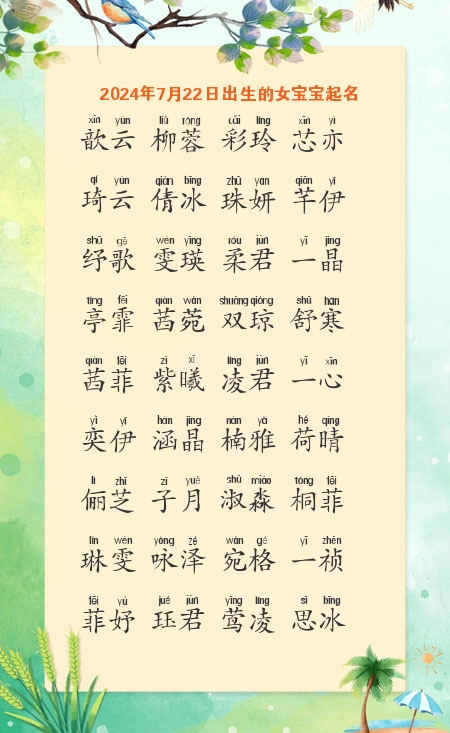 2024年7月22日出生的女宝宝起名
xīn yún liǔ róng cǎi líng xīn yì
歆云 柳蓉 彩玲 芯亦
qí yún qiàn bīng zhū yán qiān yī
琦云 倩冰 珠妍 芊伊
shū gē wén yīng róu jūn yī jīng
纾歌 雯瑛 柔君 一晶
tíng fēi qiàn wǎn shuāng qióng shū hán
亭霏 茜菀 双琼 舒寒
qiàn fēi zǐ xī líng jūn yī xīn
茜菲 紫曦 凌君 一心
yì yī hán jīng nán yǎ hé qíng
奕伊 涵晶 楠雅 荷晴
lì zhī zǐ yuè shū miǎo tóng fēi
俪芝 子月 淑淼 桐菲
lín wén yǒng zé wǎn gé yī zhēn
琳雯 咏泽 宛格 一祯
fēi yú jué jūn yīng líng sī bīng
菲妤 珏君 莺凌 思冰